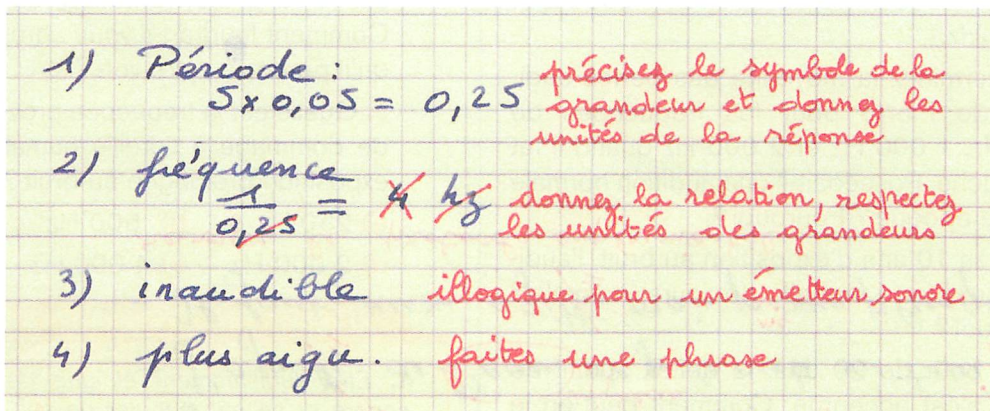 1) Période : précisez le symbole de la
5 x 0,05 = 0,25 grandeur et donnez les
unités de la réponse
2) fréquence
1/0,25 = 4 hz donnez la relation, respectez
les unités des grandeurs
3) inaudible illogique pour un émetteur sonore
4) plus aigu. faites une phrase